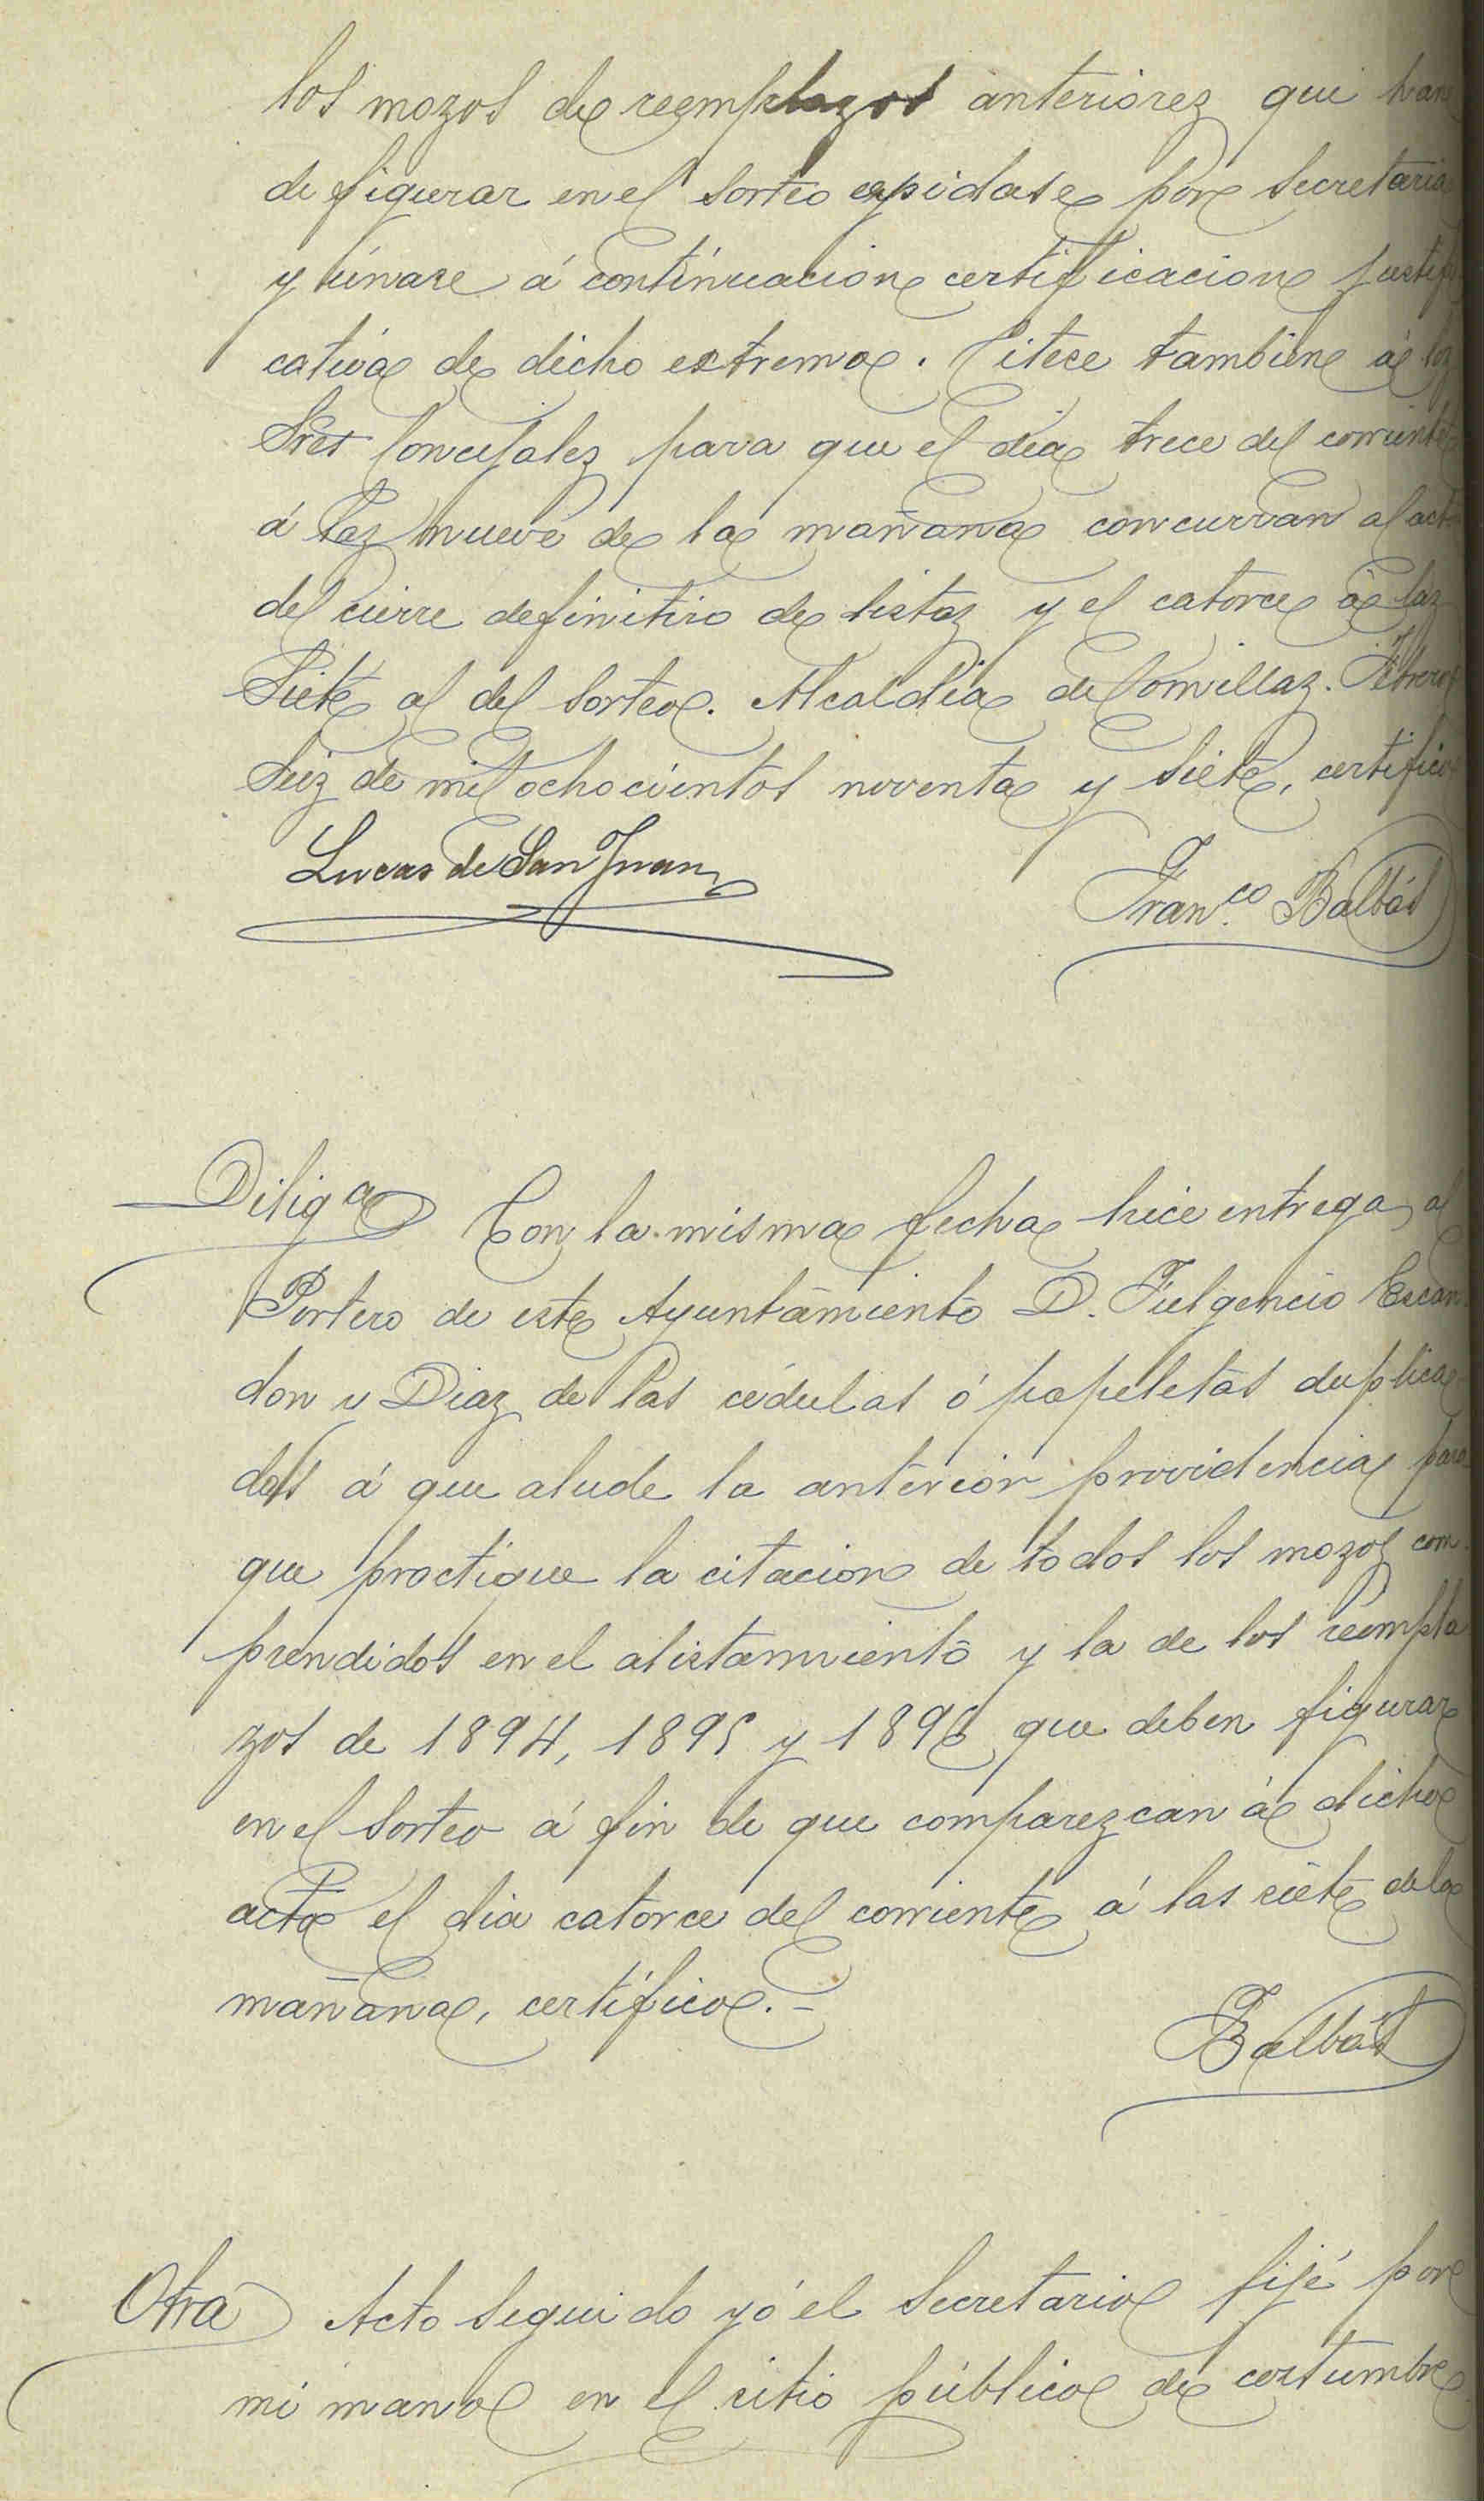 los mozos de reemplazos anteriores que han
de figurar en el sorteo espidase por Secretaria
y únase á continuacion certificacion justifi
cativa de dicho estremo. Citese tambien á los
Sres Concejales para que el dia trece del corriente
á las nueve de la mañana concurran al acto
del cierre definitivo de listas y el catorce á las
Siete al del sorteo. Alcaldia de Comillas. Febrero
Seis de mil ochocientos noventa y siete, certifico
Lucas de San Juan
Fran.co Balbás
Dilig.a Con la misma fecha hice entrega al
Portero de este Ayuntamiento D. Fulgencio Escan
don y Diaz de las cédulas ó papeletas duplica
das á que alude la anterior providencia para
que practique la citacion de todos los mozos com
prendidos en el alistamiento y la de los reempla
zos de 1894, 1895 y 1896 que deben figurar
en el sorteo á fin de que comparezcan á dicho
acto el dia catorce del corriente á las siete de la
mañana, certifico.-
Balbás
Otra Acto seguido yó el Secretario fijé por
mi mano en el sitio público de costumbre